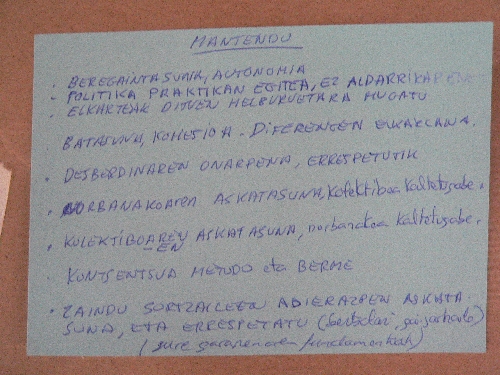 MANTENDU
· BEREGAINTASUNA, AUTONOMIA
- POLITIKA PRAKTIKAN EGITEA, EZ ALDARRIKAPENA
- ELKARTEAK DITUEN HELBURUETARA MUGATU
· BATASUNA, KOHESIOA - DIFERENTEN ELKARLANA.
· DESBERDINAREN ONARPENA, ERRESPETUTIK
· NORBANAKOAREN ASKATASUNA, kolektiboa kaltetugabe.
· KOLEKTIBOAREN ASKATASUNA, norbanakoa kaltetugabe.
EN
· KONTSENTSUA METODO eta BERME
· ZAINDU SORTZAILEEN ADIERAZPEN ASKATA
SUNA, ETA ERRESPETATU (bertsolari, gai-jartzaile)
(gure garapenaren fundamentuak)